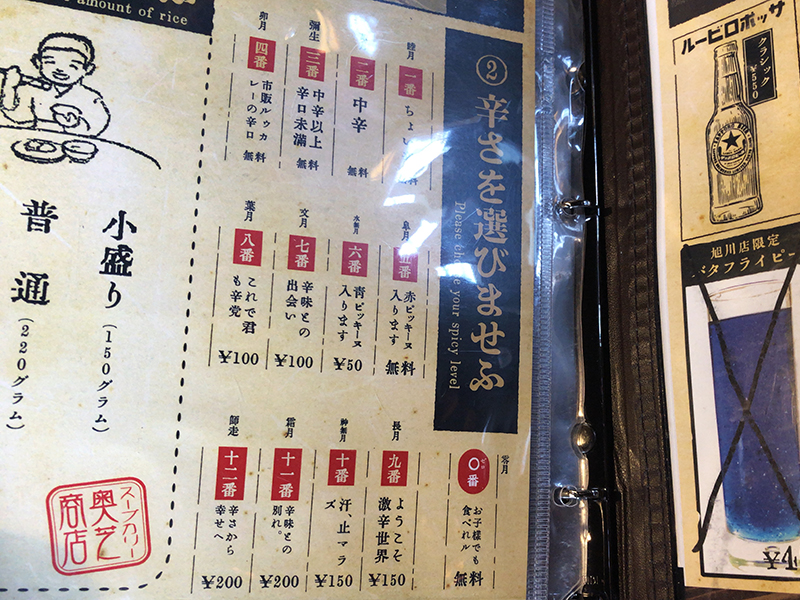 amount of rice
② 辛さを選びませふ
Please choose your spicy level
零月
〇番
ゼロ
お子様でも
食べれル
無料
睦月
一番
ちょい
無料
二番
中辛
無料
彌生
三番
中辛以上
辛口未満
無料
卯月
四番
市販ルゥカ
レーの辛口
無料
皐月
五番
赤ピッキーヌ
入ります
無料
水無月
六番
青ピッキーヌ
入ります
¥50
文月
七番
辛味との
出会い
¥100
葉月
八番
これで君
も辛党
¥100
長月
九番
ようこそ
激辛世界
¥150
神無月
十番
汗、止マラ
ズ
¥150
霜月
十一番
辛味との
別れ。
¥200
師走
十二番
辛さから
幸せへ
¥200
小盛り（150グラム）
普通（220グラム）
スープカリー
奥芝
商店
サッポロビール
クラシック
¥550
旭川店限定
バタフライピー
¥4